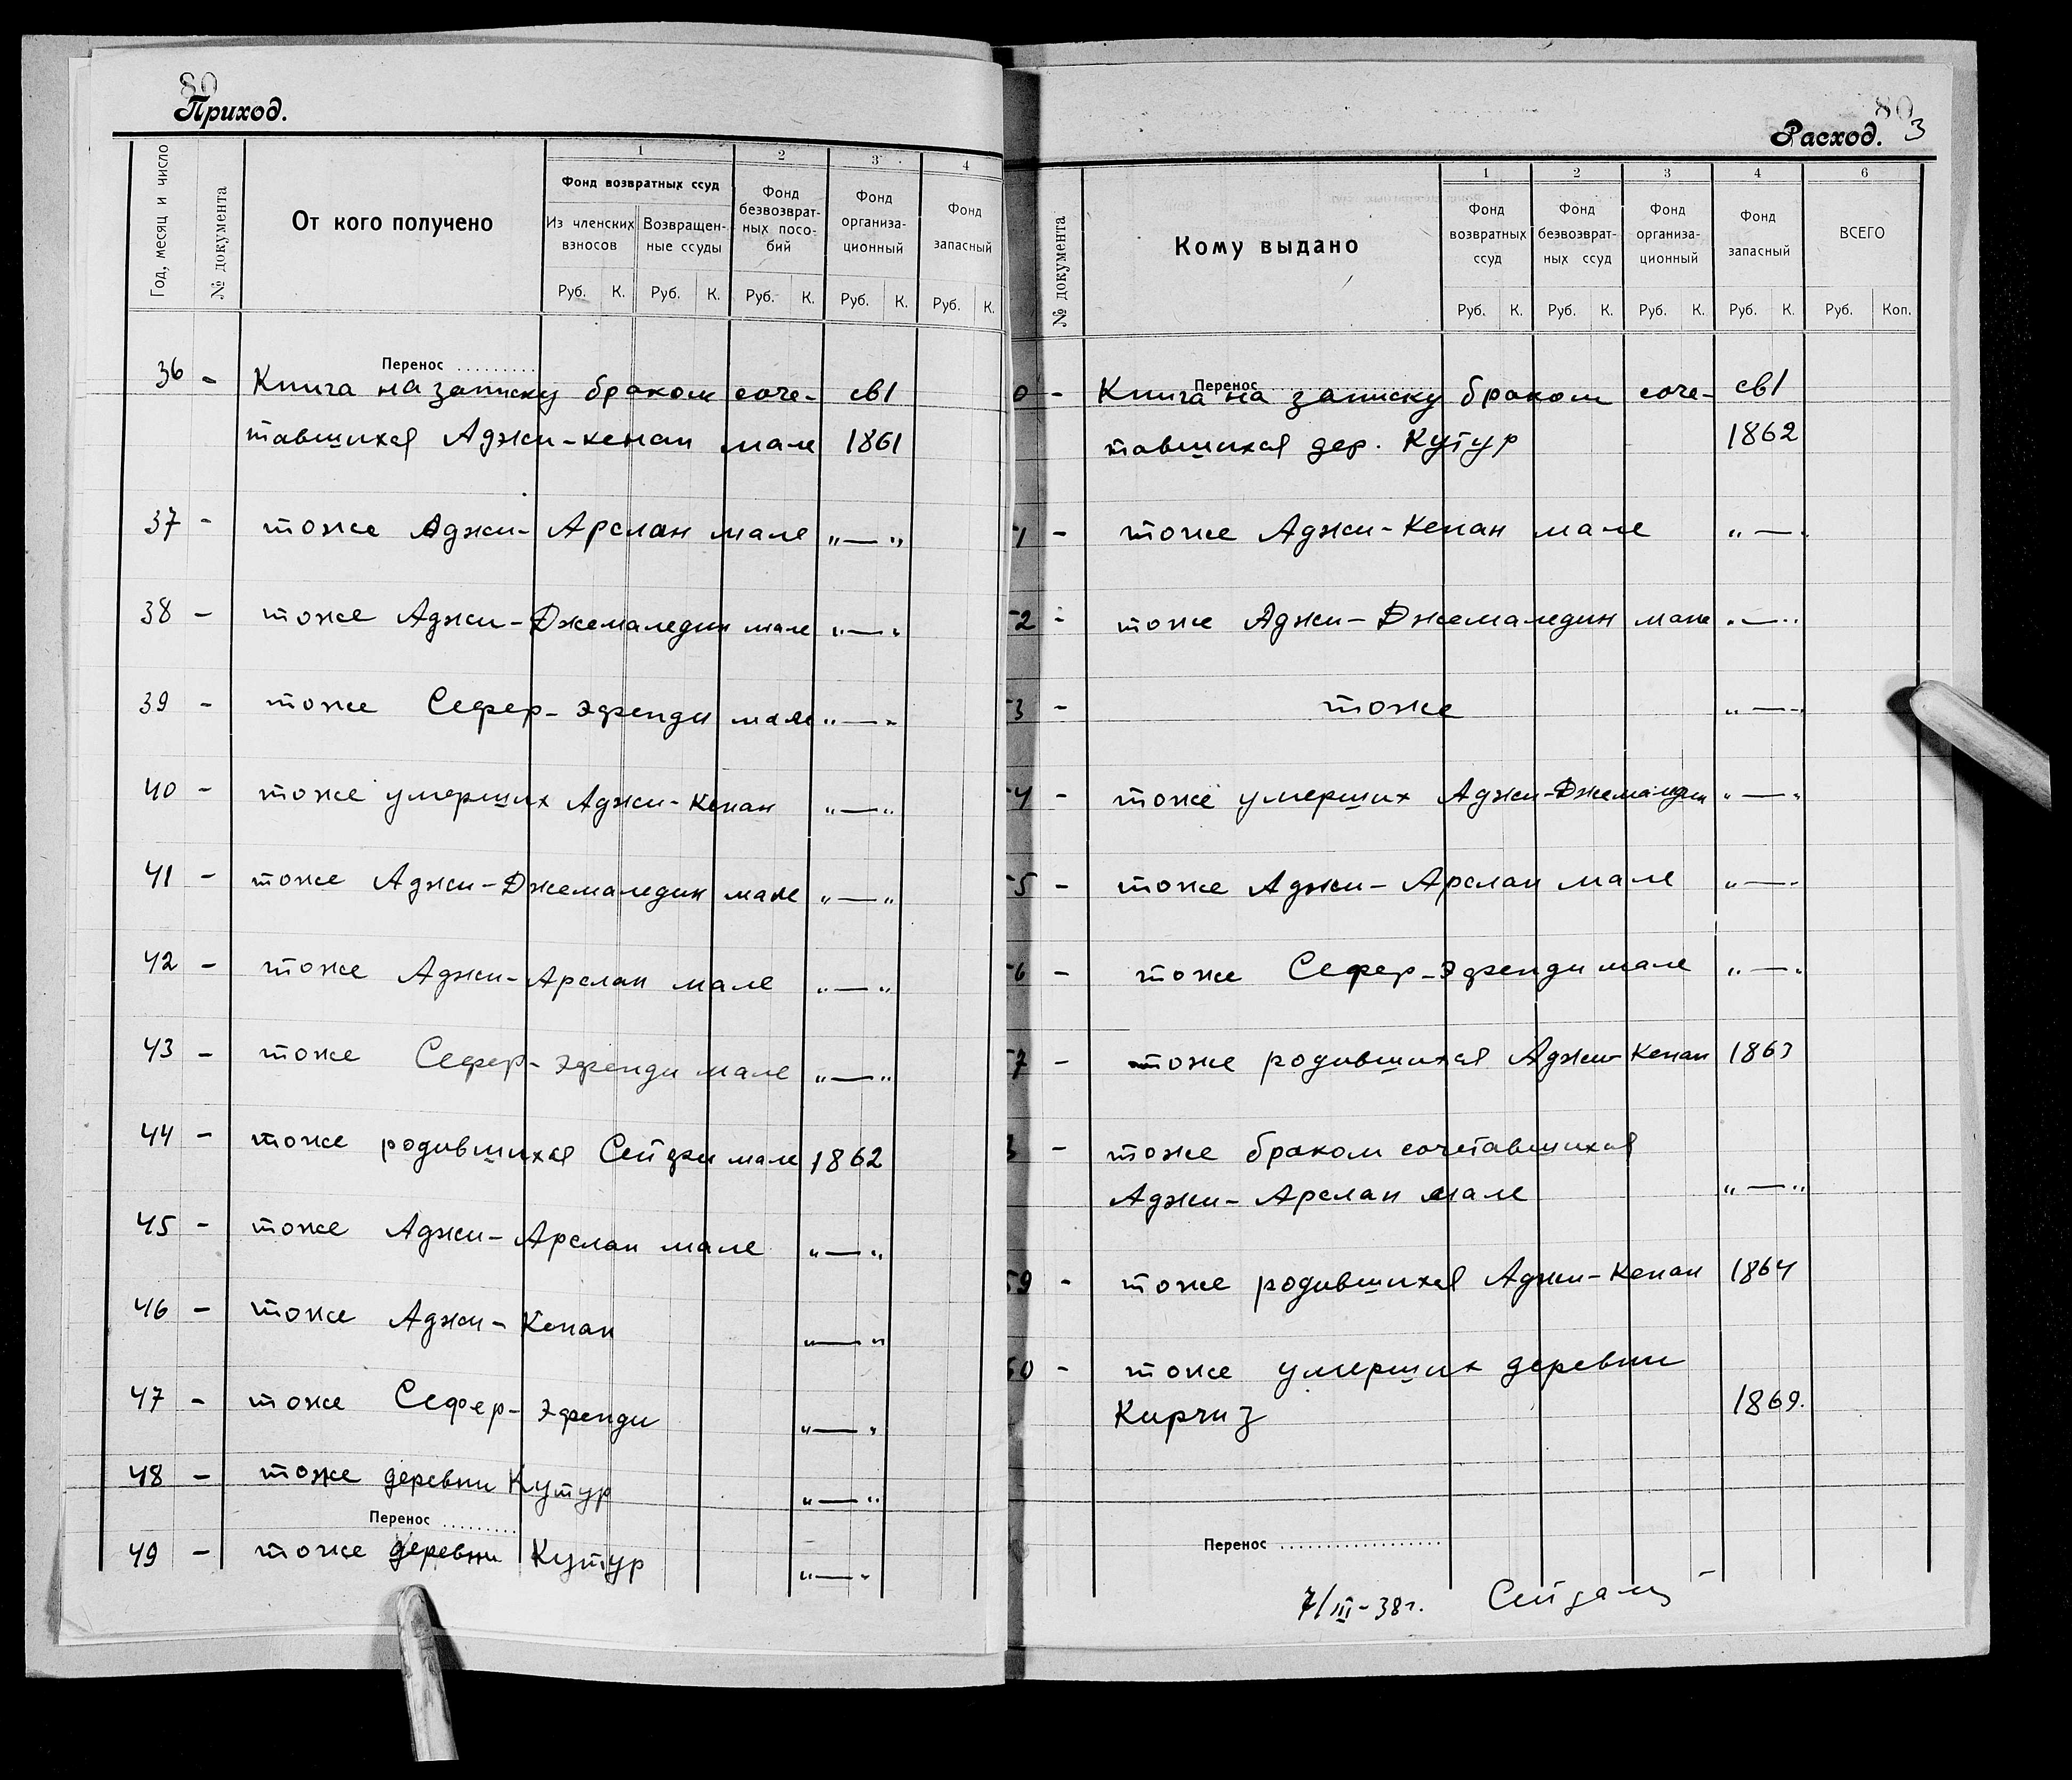 80
Приход.
Год, месяц и число
№ документа
От кого получено
1
Фонд возвратных ссуд
Из членских взносов
Возвращен-ные ссуды
2
Фонд безвозврат-ных посо-бий
3
Фонд организа-ционный
4
Фонд запасный
Руб. К. Руб. К. Руб. К. Руб. К. Руб. К.
Перенос ..........
36 - Книга на записку браком соче- св1
тавшихся Аджи-кенан мале 1861
37 - тоже Аджи-Арслан мале „—„
38 - тоже Аджи-Джемаледин мале „—„
39 - тоже Сефер-эфенди мале „—„
40 - тоже умерших Аджи-Кенан „—„
41 - тоже Аджи-Джемаледин мале „—„
42 - тоже Аджи-Арслан мале „—„
43 - тоже Сефер-эфенди мале „—„
44 - тоже родившихся мале 1862
45 - тоже Аджи-Арслан мале „—„
46 - тоже Аджи-Кенан „—„
47 - тоже Сефер-эфенди „—„
48 - тоже деревни Кутур „—„
Перенос .........
49 - тоже деревни Кутур „—„
80
3
Расход.
№ документа
Кому выдано
1
Фонд возвратных ссуд
2
Фонд безвозврат-ных ссуд
3
Фонд организа-ционный
4
Фонд запасный
6
ВСЕГО
Руб. К. Руб. К. Руб. К. Руб. К. Руб. Коп.
Перенос ..........
0 - Книга на записку браком соче- св1
тавшихся дер. Кутур 1862
1 - тоже Аджи-Кенан мале „—„
2 - тоже Аджи-Джемаледин мале „—„
3 - тоже „—„
4 - тоже умерших Аджи-Джемаледин „—„
5 - тоже Аджи-Арслан мале „—„
6 - тоже Сефер-эфенди мале „—„
7 - тоже родившихся Аджи-Кенан 1863
- тоже браком сочетавшихся
Аджи-Арслан мале „—„
59 - тоже родившихся Аджи-Кенан 1864
60 - тоже умерших деревни
Киргиз 1869.
Перенос ..................
7/III-38г.